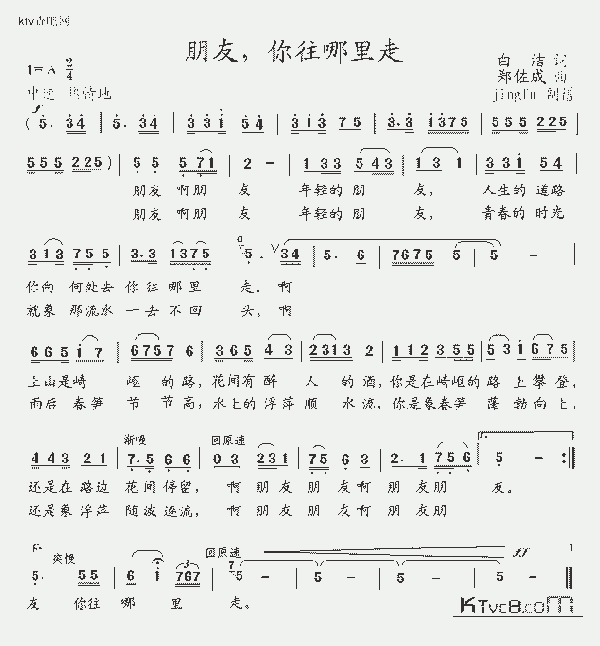 朋友，你往哪里走
1=A 2/4
白洁 词
郑佐成 曲
中速 热情地
jingfu 制谱
(5. 34 | 5. 34 | 3 3 1 5 4 | 3 1 3 7 5 | 3. 3 1 3 7 5 | 5 5 5 2 2 5 |
5 5 5 2 2 5) | 5 5 5 7 1 | 2 - | 1 3 3 5 4 3 | 1 3 1 | 3 3 1 5 4 |
朋友 啊朋 友 年轻的 朋 友， 人生的 道路
朋友 啊朋 友 年轻的 朋 友， 青春的 时光
3 1 3 7 5 5 | 3. 3 1 3 7 5 | 5. 3 4 | 5. 6 | 7 6 7 5 5 - | 5 - |
你向 何处去 你往 哪里 走。啊
就象 那流水 一去 不回 头，啊
6 6 5 1 7 | 6 7 5 7 6 | 3 6 5 4 3 | 2 3 1 3 2 | 1 1 2 3 5 5 | 5 3 1 6 7 5 |
上山是崎 岖 的 路，花间有 醉 人 的 酒，你是在崎岖的 路 上 攀 登，
雨后 春笋 节 节 高，水上的 浮萍 顺 水 流，你是象春笋 蓬 勃 向 上，
渐慢 回原速
4 4 3 2 1 | 7. 5 6 6 | 0 3 2 3 1 | 7 5 6 3 | 2. 1 7 5 6 | 5 - :|
还是在 路边 花间 停留， 啊 朋友 朋友 啊 朋友 朋 友。
还是象 浮萍 随波 逐流， 啊 朋友 朋友 啊 朋友 朋
突慢 回原速 ff
5. 5 5 | 6 1 7 6 7 | 5 - | 5 - | 5 - | 5 - |
友 你往 哪 里 走。
KTvc8.com